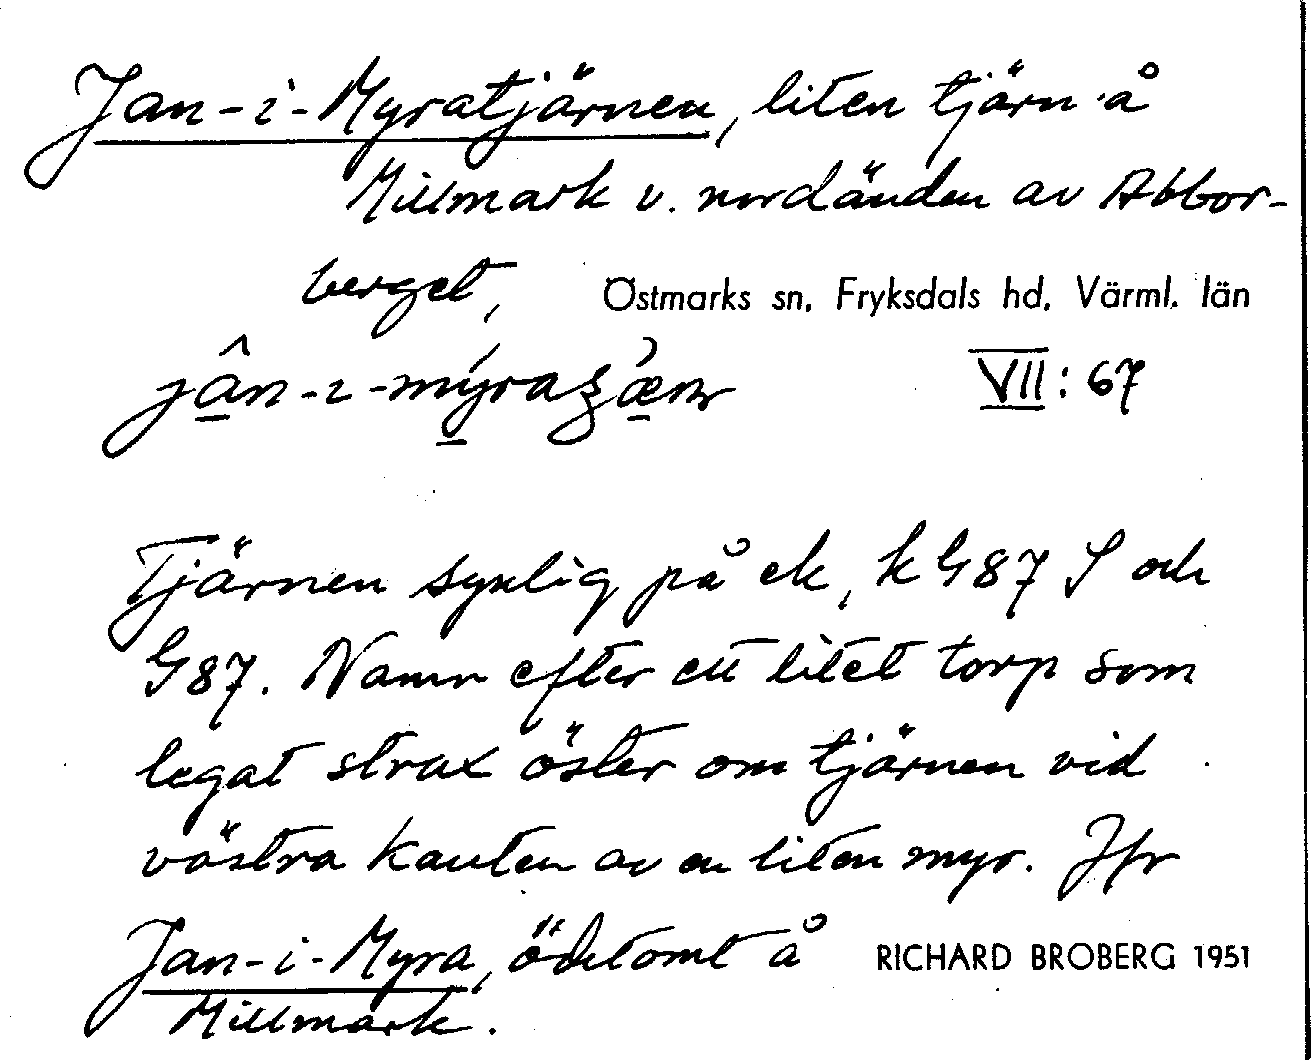 Jan-i-Myratjärnen, liten tjärn å
Millmark v. nordänden av Abbor-
berget,
Östmarks sn, Fryksdals hd, Värml. län
VII: 67
Tjärnen synlig på ek, k G87 S och
G87. Namn efter ett litet torp som
legat strax öster om tjärnen vid
västra kanten av en liten myr. Jfr
Jan-i-Myra, ödetomt å
Millmark.
RICHARD BROBERG 1951